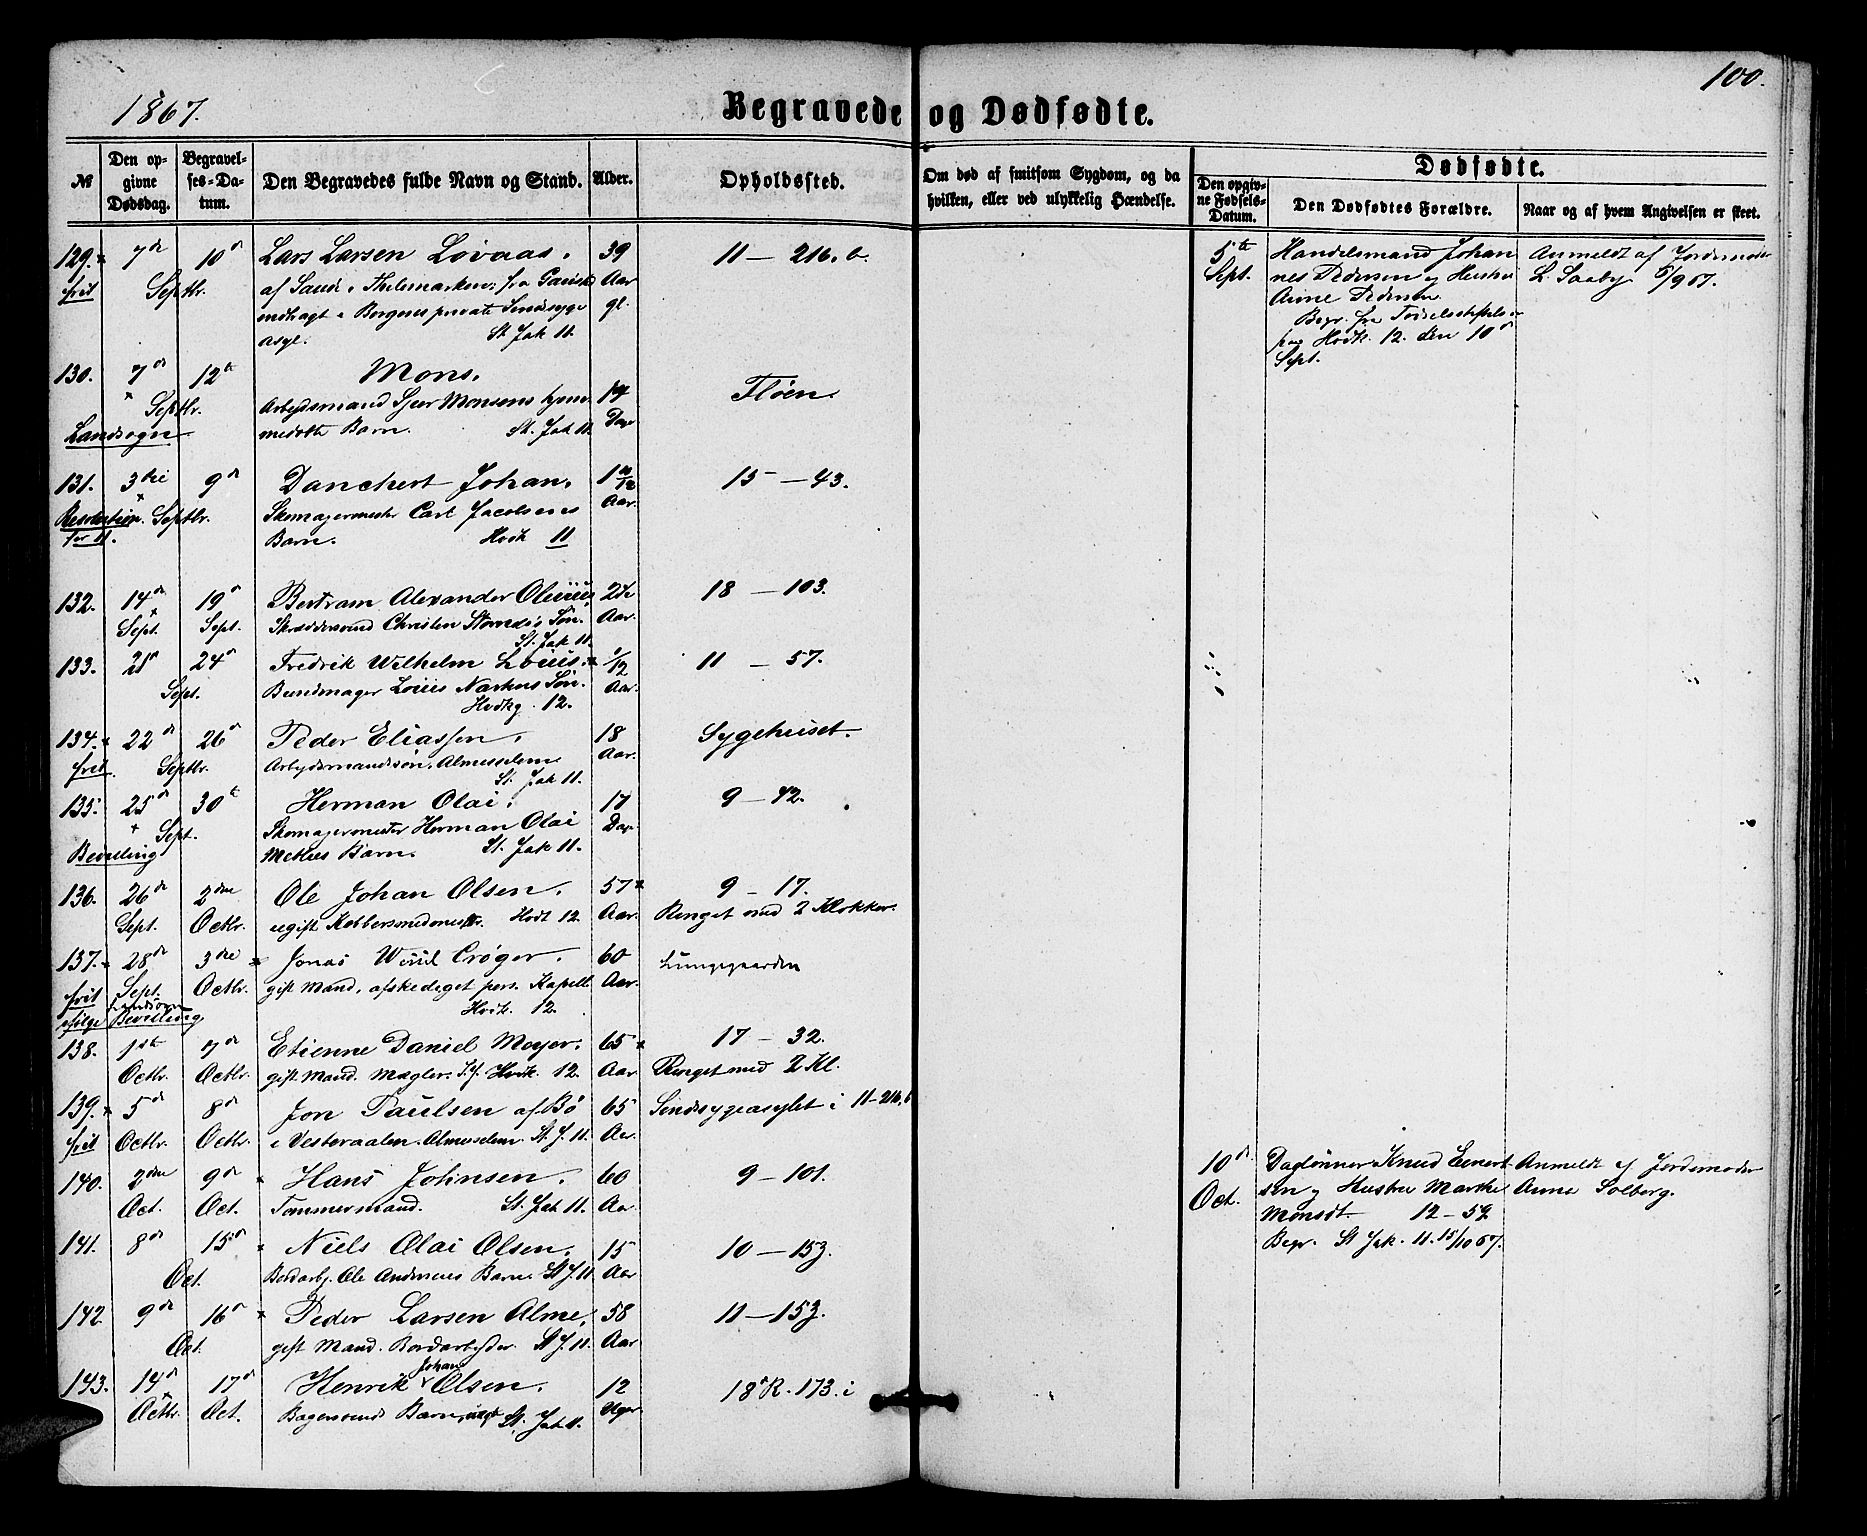 100.
1867.
Begravede og Dødfødte.
№
Den op-
givne
Dødsdag.
Begravel-
ses-Da-
tum.
Den Begravedes fulde Navn og Stand.
Alder.
Opholdssted.
Om død af smitsom Sygdom, og da
hvilken, eller ved ulykkelig Hændelse.
Dødfødte.
Den opgiv-
ne Fødsels-
Datum.
Den Dødfødtes Forældre.
Naar og af hvem Angivelsen er skeet.
129. 7de 10d Lars Larsen Løvaas. 39 11 — 216. b.
frit Septbr. af Sande i Thelemarken; fra Aar
indlagt i Bergens private Sindssyge gl.
asyl. St Jak 11.
5te Handelsmand Johan Anmeldt af Jordemoder
Sept. nes Pedersen og Hustru L. Saaby 5/9 67.
Anne Pedersen.
Begr. fra Fødselsstiftelsen
paa Hvdk. 12. den 10d
Sept.
130. 7de 12te Mons. 14 Fløen.
Septbr. Arbeidsmand Sjur Monsens hjem Dage
Landsogn medøbte Barn. St. Jak 11.
131. 3die 9de Danchert Johan. 1 10/12 15 — 43.
Septbr. Skomagermester Carl Jacobsens Aar.
for 11. Barn. Hvdk 11
132. 14de 19d Bertram Alexander Oluius 24 18 — 103.
Sept. Sept. Skræddersvend Christen Søn. Aar.
St. Jak 11.
133. 21d 24d Fredrik Wilhelm Louis. 1/12 11 — 57.
Sept. Bundmager Louis Søn. Aar.
Hvdkg. 12.
134. 22d 26d Peder Eliassen. 18 Sygehuset.
frit Septbr. Arbeidsmandssøn. Almuselem Aar.
St. Jak 11.
135. 25d 30te Herman Olai. 17 9 — 42.
Sept. Skomagermester Herman Olai Dage
Bevilling Barn. St. Jak 11.
136. 26de 2den Ole Johan Olsen. 57 9 — 17.
Sept. Octbr. ugift Kobbersmedmester. Hvdk 12. Aar. Ringet med 2 Klokker.
137. 28de 3die Jonas Wiid Crøger. 60 Lungegaarden
frit Sept. Octbr. gift Mand, afskediget pers. Kapell Aar.
Landsogn Hvdk. 12.
ifølge Bevilling
138. 1ste 7de Etienne Daniel Meyer. 65 17 — 32.
Octbr. Octbr. gift Mand. Mægler. Hvdk. 12. Aar Ringet med 2 Kl.
139. 5de 8de Jon Paulsen af Bø 65 Sindssygeasylet i 11-216, b
frit Octbr. Octbr. i Vesteraalen. Almuselem. St. J. 11. Aar.
140. 2den 9de Hans Johnsen. 60 9 — 101.
Oct. Oct. Tømmermand. St. Jak 11. Aar
10d Daglønner Knud Einert Anmeldt af Jordemoder
Oct. sen og Hustru Marthe Anne Solberg.
Monsdt. 12 — 52
Begr. St Jak. 11. 15/10 67.
141. 8de 15de Niels Olai Olsen. 15 10 — 153.
Oct. Bordarb. Ole Andersens Barn St J. 11. Aar
142 9de 16d Peder Larsen Alme. 58 11 — 153.
Oct. gift Mand. Bordarbeider. St J. 11. Aar
143. 14d 17d Henrik Johan Olsen. 12 18d R. 173. i
Octbr. Oct. Bagersvends Barn St. Jak 11. Uger